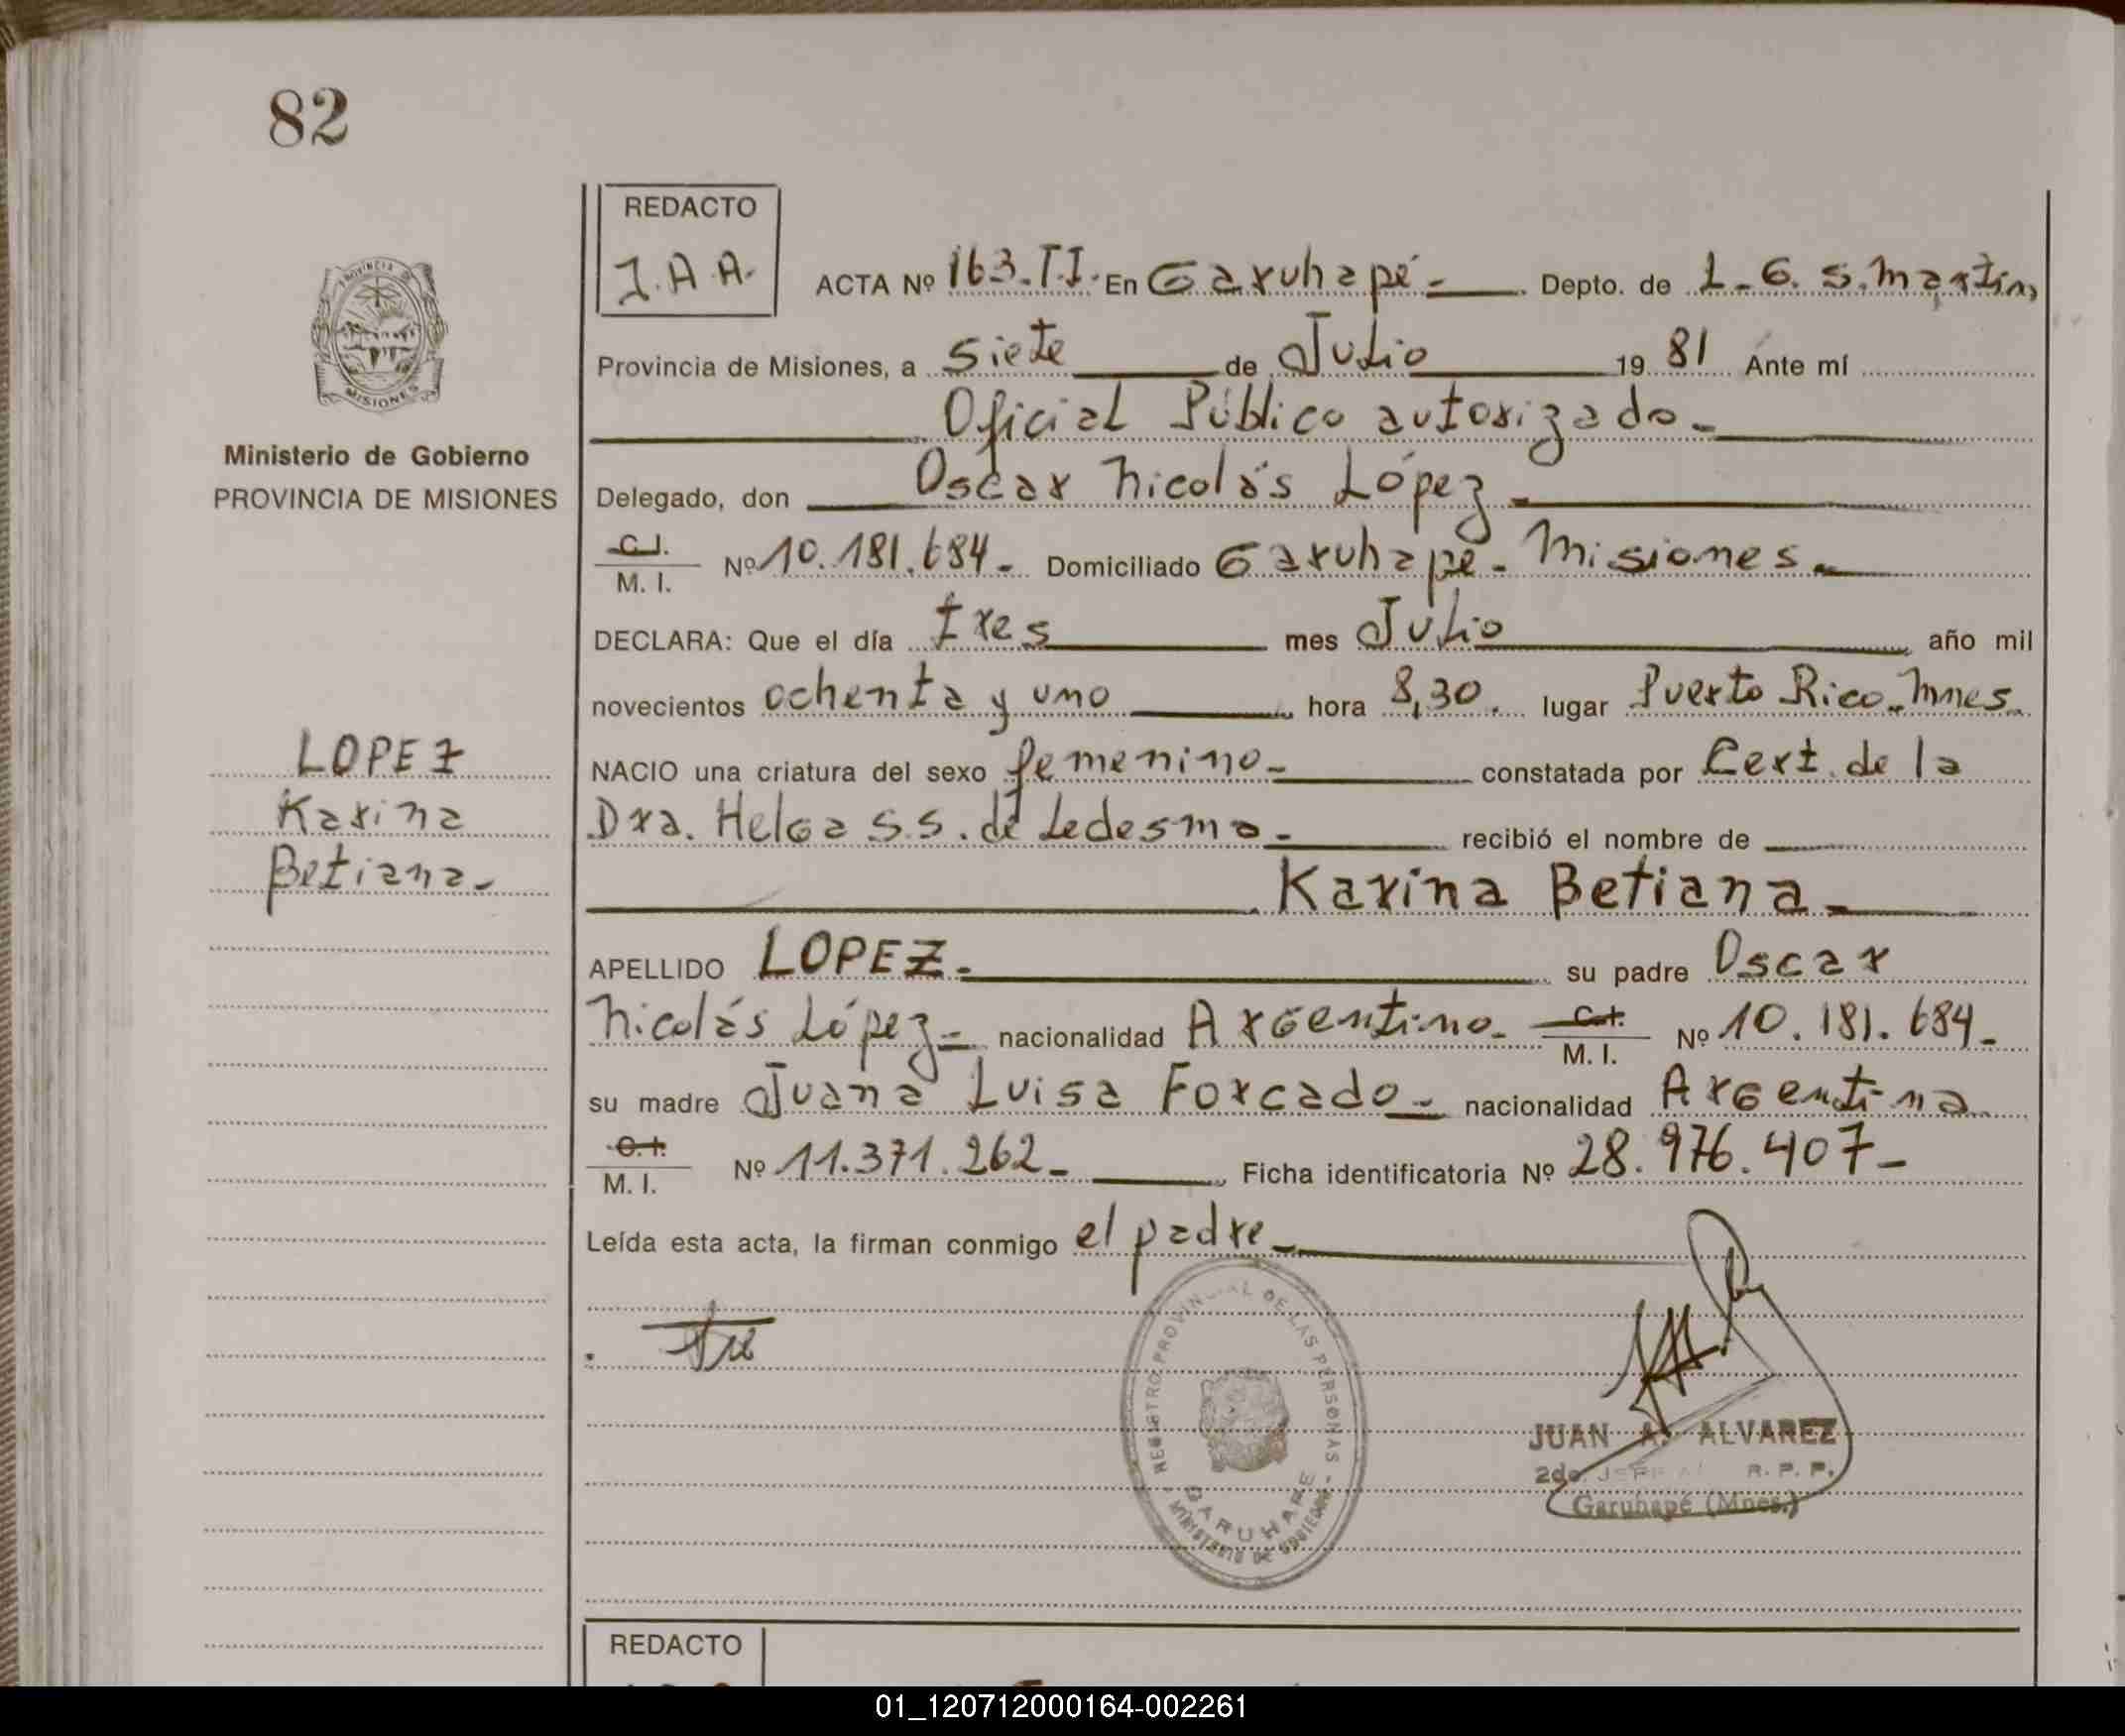 82
REDACTO
J.A.A.
ACTA Nº 163.T.I. En Garuhapé - Depto. de L. G. S. Martín,
PROVINCIA DE MISIONES
Provincia de Misiones, a siete de Julio 19 81 Ante mí
Oficial Público autorizado -
Ministerio de Gobierno
PROVINCIA DE MISIONES
Delegado, don Oscar Nicolás López -
C. I.
M. I. Nº 10.181.684 - Domiciliado Garuhape - Misiones -
DECLARA: Que el día tres mes Julio año mil
novecientos ochenta y uno hora 8,30. lugar Puerto Rico - Mnes.
LOPEZ
NACIO una criatura del sexo femenino - constatada por Cert. de la
Karina
Dra. Helga S.S. de Ledesma - recibió el nombre de
Betiana -
Karina Betiana -
APELLIDO LOPEZ - su padre Oscar
Nicolás López - nacionalidad Argentino - C. I. M. I. Nº 10.181.684 -
su madre Juana Luisa Forcado - nacionalidad Argentina
C. I.
M. I. Nº 11.371.262 - Ficha identificatoria Nº 28.976.407 -
Leída esta acta, la firman conmigo el padre -
REGISTRO PROVINCIAL DE LAS PERSONAS - MINISTERIO DE GOBIERNO
GARUHAPE
JUAN A. ALVAREZ
2do. R. P. P.
Garuhapé (Mnes.)
REDACTO
01_120712000164-002261